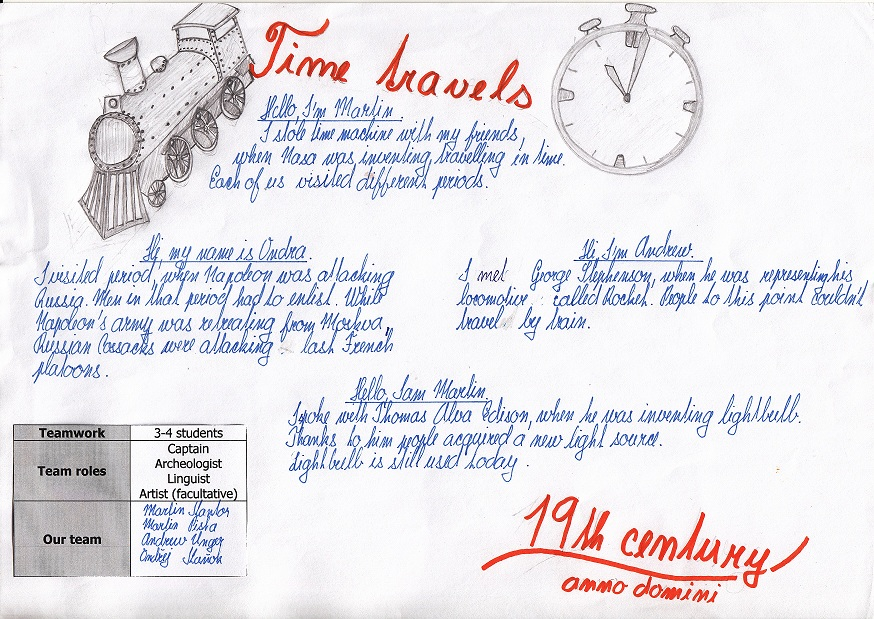 Time travels
Hello, I'm Martin.
I stole time machine with my friends,
when Nasa was inventing travelling in time.
Each of us visited different periods.
Hi, my name is Ondra.
I visited period, when Napoleon was attacking
Russia. Men in that period had to enlist. While
Napoleon's army was retreating from Moskva,
Russian Cossacks were attacking last French
platoons.
Hi, I'm Andrew.
I met George Stephenson, when he was representing his
locomotive called Rocket. People to this point couldn't
travel by train.
Hello, I am Martin.
I spoke with Thomas Alva Edison, when he was inventing lightbulb.
Thanks to him people acquired a new light source.
Lightbulb is still used today.
Teamwork 3-4 students
Team roles Captain
Archeologist
Linguist
Artist (facultative)
Our team Martin
Martin
Andrew Unger
Ondřej
19th century
anno domini